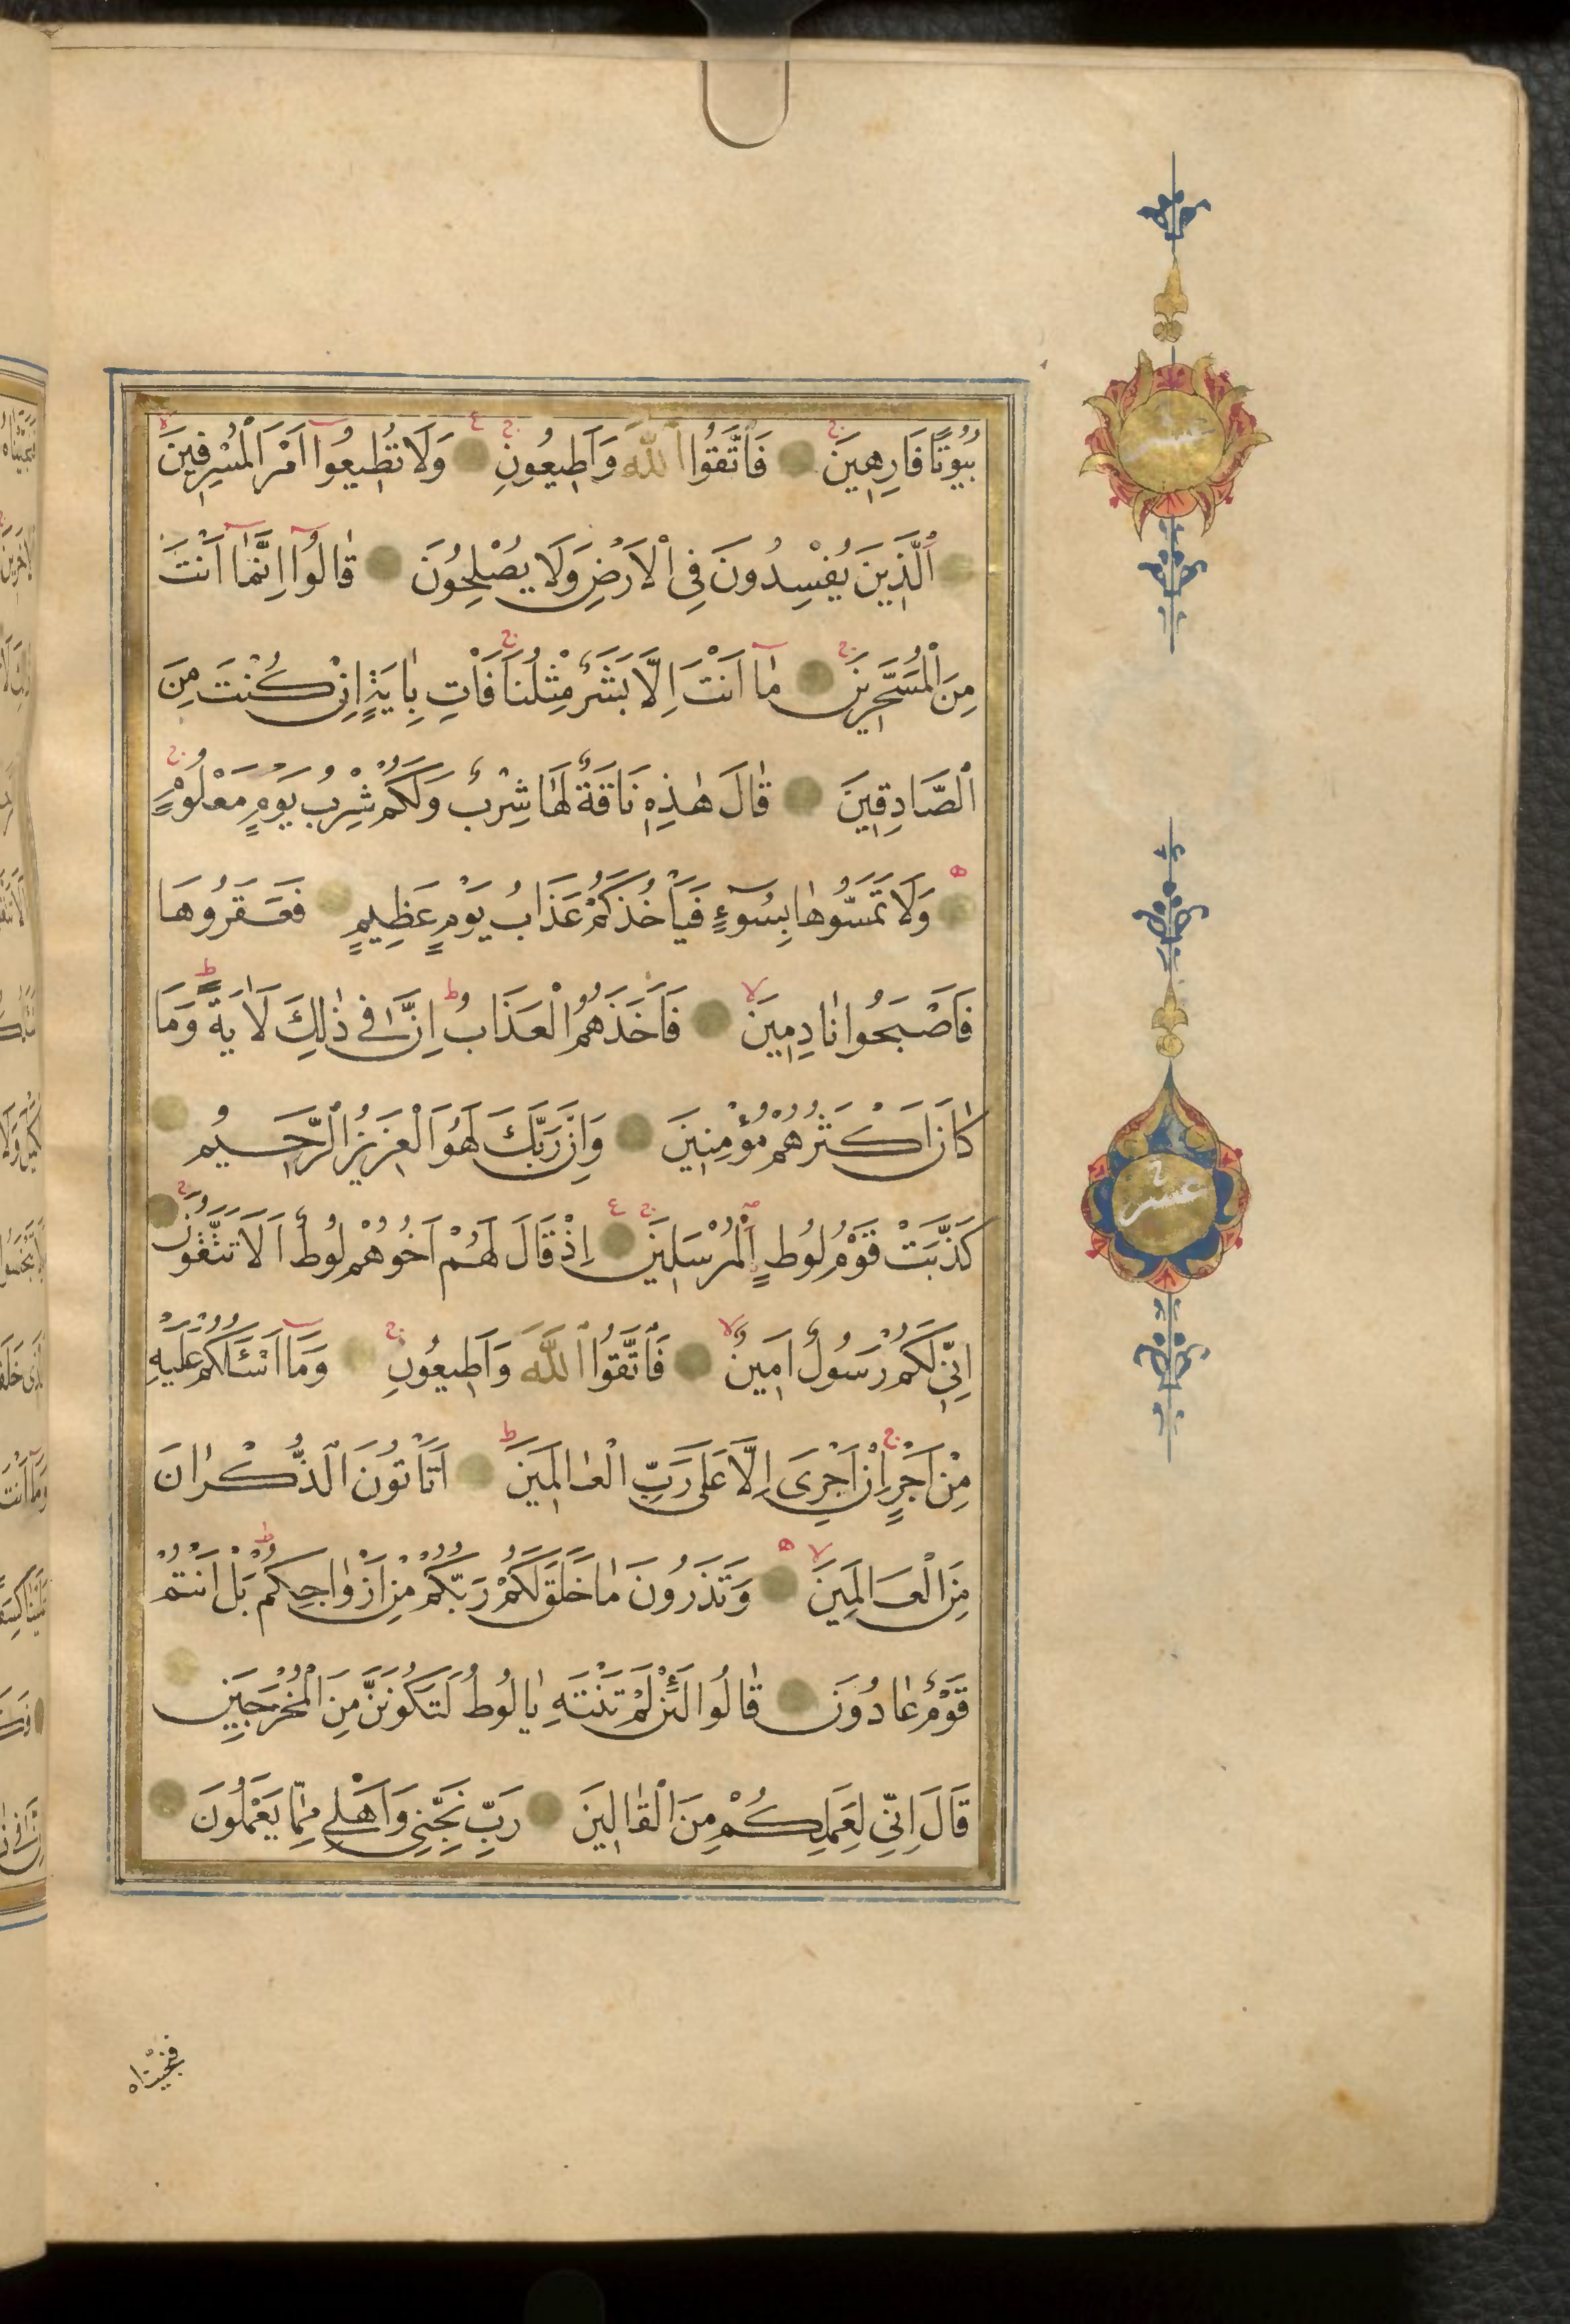 بُيُوتًا فَارِهِينَ فَاتَّقُوا اللَّهَ وَأَطِيعُونِ وَلَا تُطِيعُوا اَمْرَ الْمُسْرِفِينَ
اَلَّذِينَ يُفْسِدُونَ فِي الْاَرْضِ وَلَا يُصْلِحُونَ قَالُوا اِنَّمَا اَنْتَ
مِنَ الْمُسَحَّرِينَ مَا اَنْتَ اِلَّا بَشَرٌ مِثْلُنَا فَأْتِ بِاٰيَةٍ اِنْ كُنْتَ مِنَ
الصَّادِقِينَ قَالَ هٰذِهِ نَاقَةٌ لَهَا شِرْبٌ وَلَكُمْ شِرْبُ يَوْمٍ مَعْلُومٍ
وَلَا تَمَسُّوهَا بِسُوءٍ فَيَأْخُذَكُمْ عَذَابُ يَوْمٍ عَظِيمٍ فَعَقَرُوهَا
فَاَصْبَحُوا نَادِمِينَ فَاَخَذَهُمُ الْعَذَابُ اِنَّ فِي ذٰلِكَ لَاٰيَةً وَمَا
كَانَ اَكْثَرُهُمْ مُؤْمِنِينَ وَاِنَّ رَبَّكَ لَهُوَ الْعَزِيزُ الرَّحِيمُ
كَذَّبَتْ قَوْمُ لُوطٍ الْمُرْسَلِينَ اِذْ قَالَ لَهُمْ اَخُوهُمْ لُوطٌ اَلَا تَتَّقُونَ
اِنِّي لَكُمْ رَسُولٌ اَمِينٌ فَاتَّقُوا اللَّهَ وَاَطِيعُونِ وَمَا اَسْئَلُكُمْ عَلَيْهِ
مِنْ اَجْرٍ اِنْ اَجْرِيَ اِلَّا عَلَى رَبِّ الْعَالَمِينَ اَتَأْتُونَ الذُّكْرَانَ
مِنَ الْعَالَمِينَ وَتَذَرُونَ مَا خَلَقَ لَكُمْ رَبُّكُمْ مِنْ اَزْوَاجِكُمْ بَلْ اَنْتُمْ
قَوْمٌ عَادُونَ قَالُوا لَئِنْ لَمْ تَنْتَهِ يَا لُوطُ لَتَكُونَنَّ مِنَ الْمُخْرَجِينَ
قَالَ اِنِّي لِعَمَلِكُمْ مِنَ الْقَالِينَ رَبِّ نَجِّنِي وَاَهْلِي مِمَّا يَعْمَلُونَ
فنجيناه
عشر